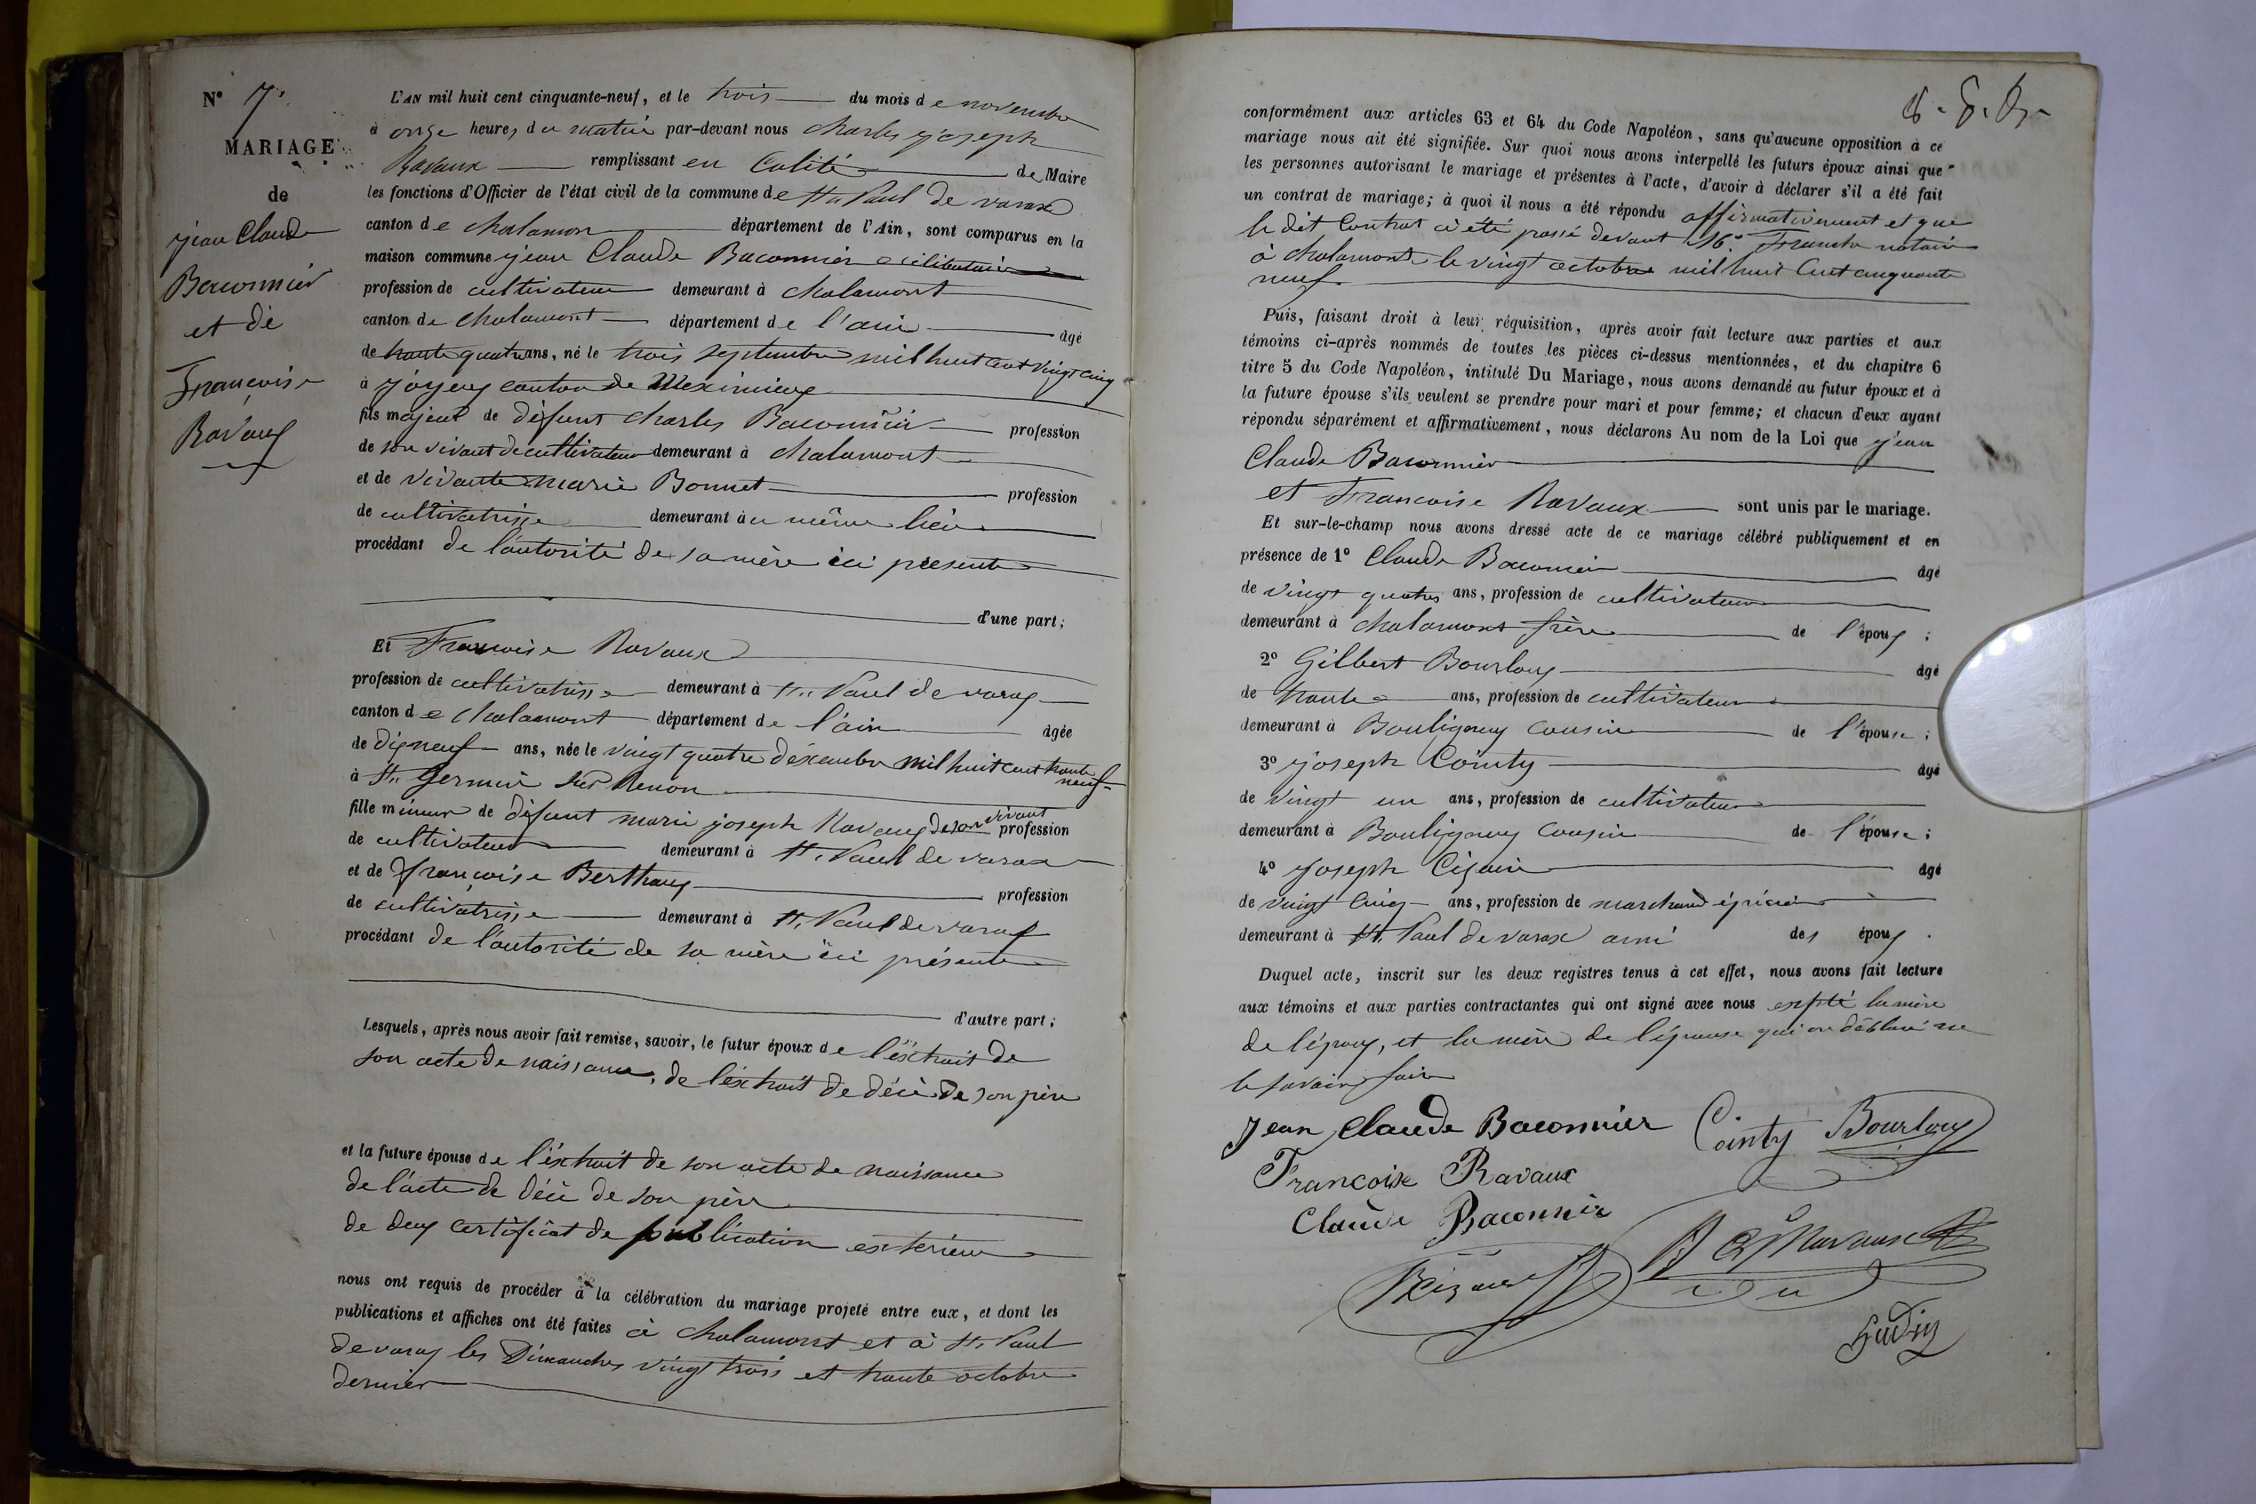 N° 7.
MARIAGE
de
jean Claude
Baconnier
et de
Françoise
Ravaux
L'AN mil huit cent cinquante-neuf, et le trois du mois de novembre
à onze heures du matin par-devant nous charles joseph
Ravaux remplissant en Calité de Maire
les fonctions d'Officier de l'état civil de la commune de St Paul de varax
canton de chalamon département de l'Ain, sont comparus en la
maison commune jean Claude Baconnier célibataire
profession de cultivateur demeurant à chalamont
canton de chalamont département de l'ain âgé
de trante quatre ans, né le trois septembre mil huit cent vingt cinq
à joyeux canton de Meximieux
fils majeur de défunt charles Baconnier profession
de son vivant de cultivateur demeurant à chalamont
et de vivante marie Bonnet profession
de cultivatrisse demeurant au même lieu
procédant de l'autorité de sa mère ici présente
d'une part;
Et Francoise Ravaux
profession de cultivatrisse demeurant à St Paul de varax
canton de chalamont département de l'ain âgée
de dix neuf ans, née le vingt quatre déscembre mil huit cent trante neuf
à St Germain sur Renon
fille mineur de défunt marie joseph Ravaux de son vivant profession
de cultivateur demeurant à St Paul de varax
et de françoise Berthaux profession
de cultivatrisse demeurant à St Paul de varax
procédant de l'autorité de sa mère ici présente
d'autre part;
Lesquels, après nous avoir fait remise, savoir, le futur époux de l'éxtrait de
son acte de naissance, de l'éxtrait de décè de son père
et la future épouse de l'éxtrait de son acte de naissance
de l'acte de décè de son père
de deux certificat de publication exterieur
nous ont requis de procéder à la célébration du mariage projeté entre eux, et dont les
publications et affiches ont été faites à chalamont et à St Paul
de varax les Dimanches vingt trois et trante octobre
dernier
conformément aux articles 63 et 64 du Code Napoléon, sans qu'aucune opposition à ce
mariage nous ait été signifiée. Sur quoi nous avons interpellé les futurs époux ainsi que
les personnes autorisant le mariage et présentes à l'acte, d'avoir à déclarer s'il a été fait
un contrat de mariage; à quoi il nous a été répondu affirmativement et que
le dit Contrat a été passé devant Me notaire
à chalamont le vingt octobre mil huit Cent cinquante
neuf.
Puis, faisant droit à leur réquisition, après avoir fait lecture aux parties et aux
témoins ci-après nommés de toutes les pièces ci-dessus mentionnées, et du chapitre 6
titre 5 du Code Napoléon, intitulé Du Mariage, nous avons demandé au futur époux et à
la future épouse s'ils veulent se prendre pour mari et pour femme; et chacun d'eux ayant
répondu séparément et affirmativement, nous déclarons Au nom de la Loi que jean
Claude Baconnier
et Francoise Ravaux sont unis par le mariage.
Et sur-le-champ nous avons dressé acte de ce mariage célébré publiquement et en
présence de 1° Claude Baconnier âgé
de vingt quatre ans, profession de cultivateur
demeurant à chalamont frère de l'époux;
2° Gilbert Bourloux âgé
de trante ans, profession de cultivateur
demeurant à Bouligneux cousin de l'épouse;
3° joseph Cointy âgé
de vingt un ans, profession de cultivateur
demeurant à Bouligneux cousin de l'épouse;
4° joseph âgé
de vingt cinq ans, profession de marchand épicier
demeurant à St Paul de varax ami des époux.
Duquel acte, inscrit sur les deux registres tenus à cet effet, nous avons fait lecture
aux témoins et aux parties contractantes qui ont signé avec nous expté la mère
de l'époux, et la mère de l'épouse qui on déclaré ne
le savoir faire
Jean Claude Baconnier Cointy Bourloux
Francoise Ravaux
Claude Baconnier
Ravaux